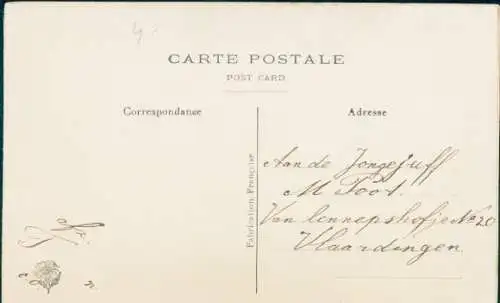 CARTE POSTALE
POST CARD
Correspondanse
Adresse
Fabrication Française
Aan de Jongejuff
M Poot.
Van lennepshofje No 20
Vlaardingen